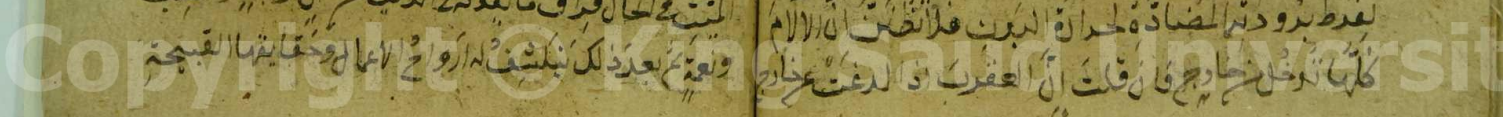 لفرط برودتها المضادة لحرارة البدن فلا تظنن ان الالام
كلها تدخل من خارج فان قلت ان العقرب اذا لدغت من خارج
الميت في الحال
ونعمة ثم بعد ذلك ينكشف له ارواح الاعمال وحقايقها القبيحة
Copyright © King Saud University